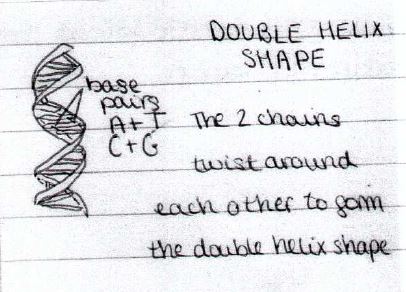 DOUBLE HELIX
SHAPE
base
pairs
A+T
C+G
The 2 chains
twist around
each other to form
the double helix shape